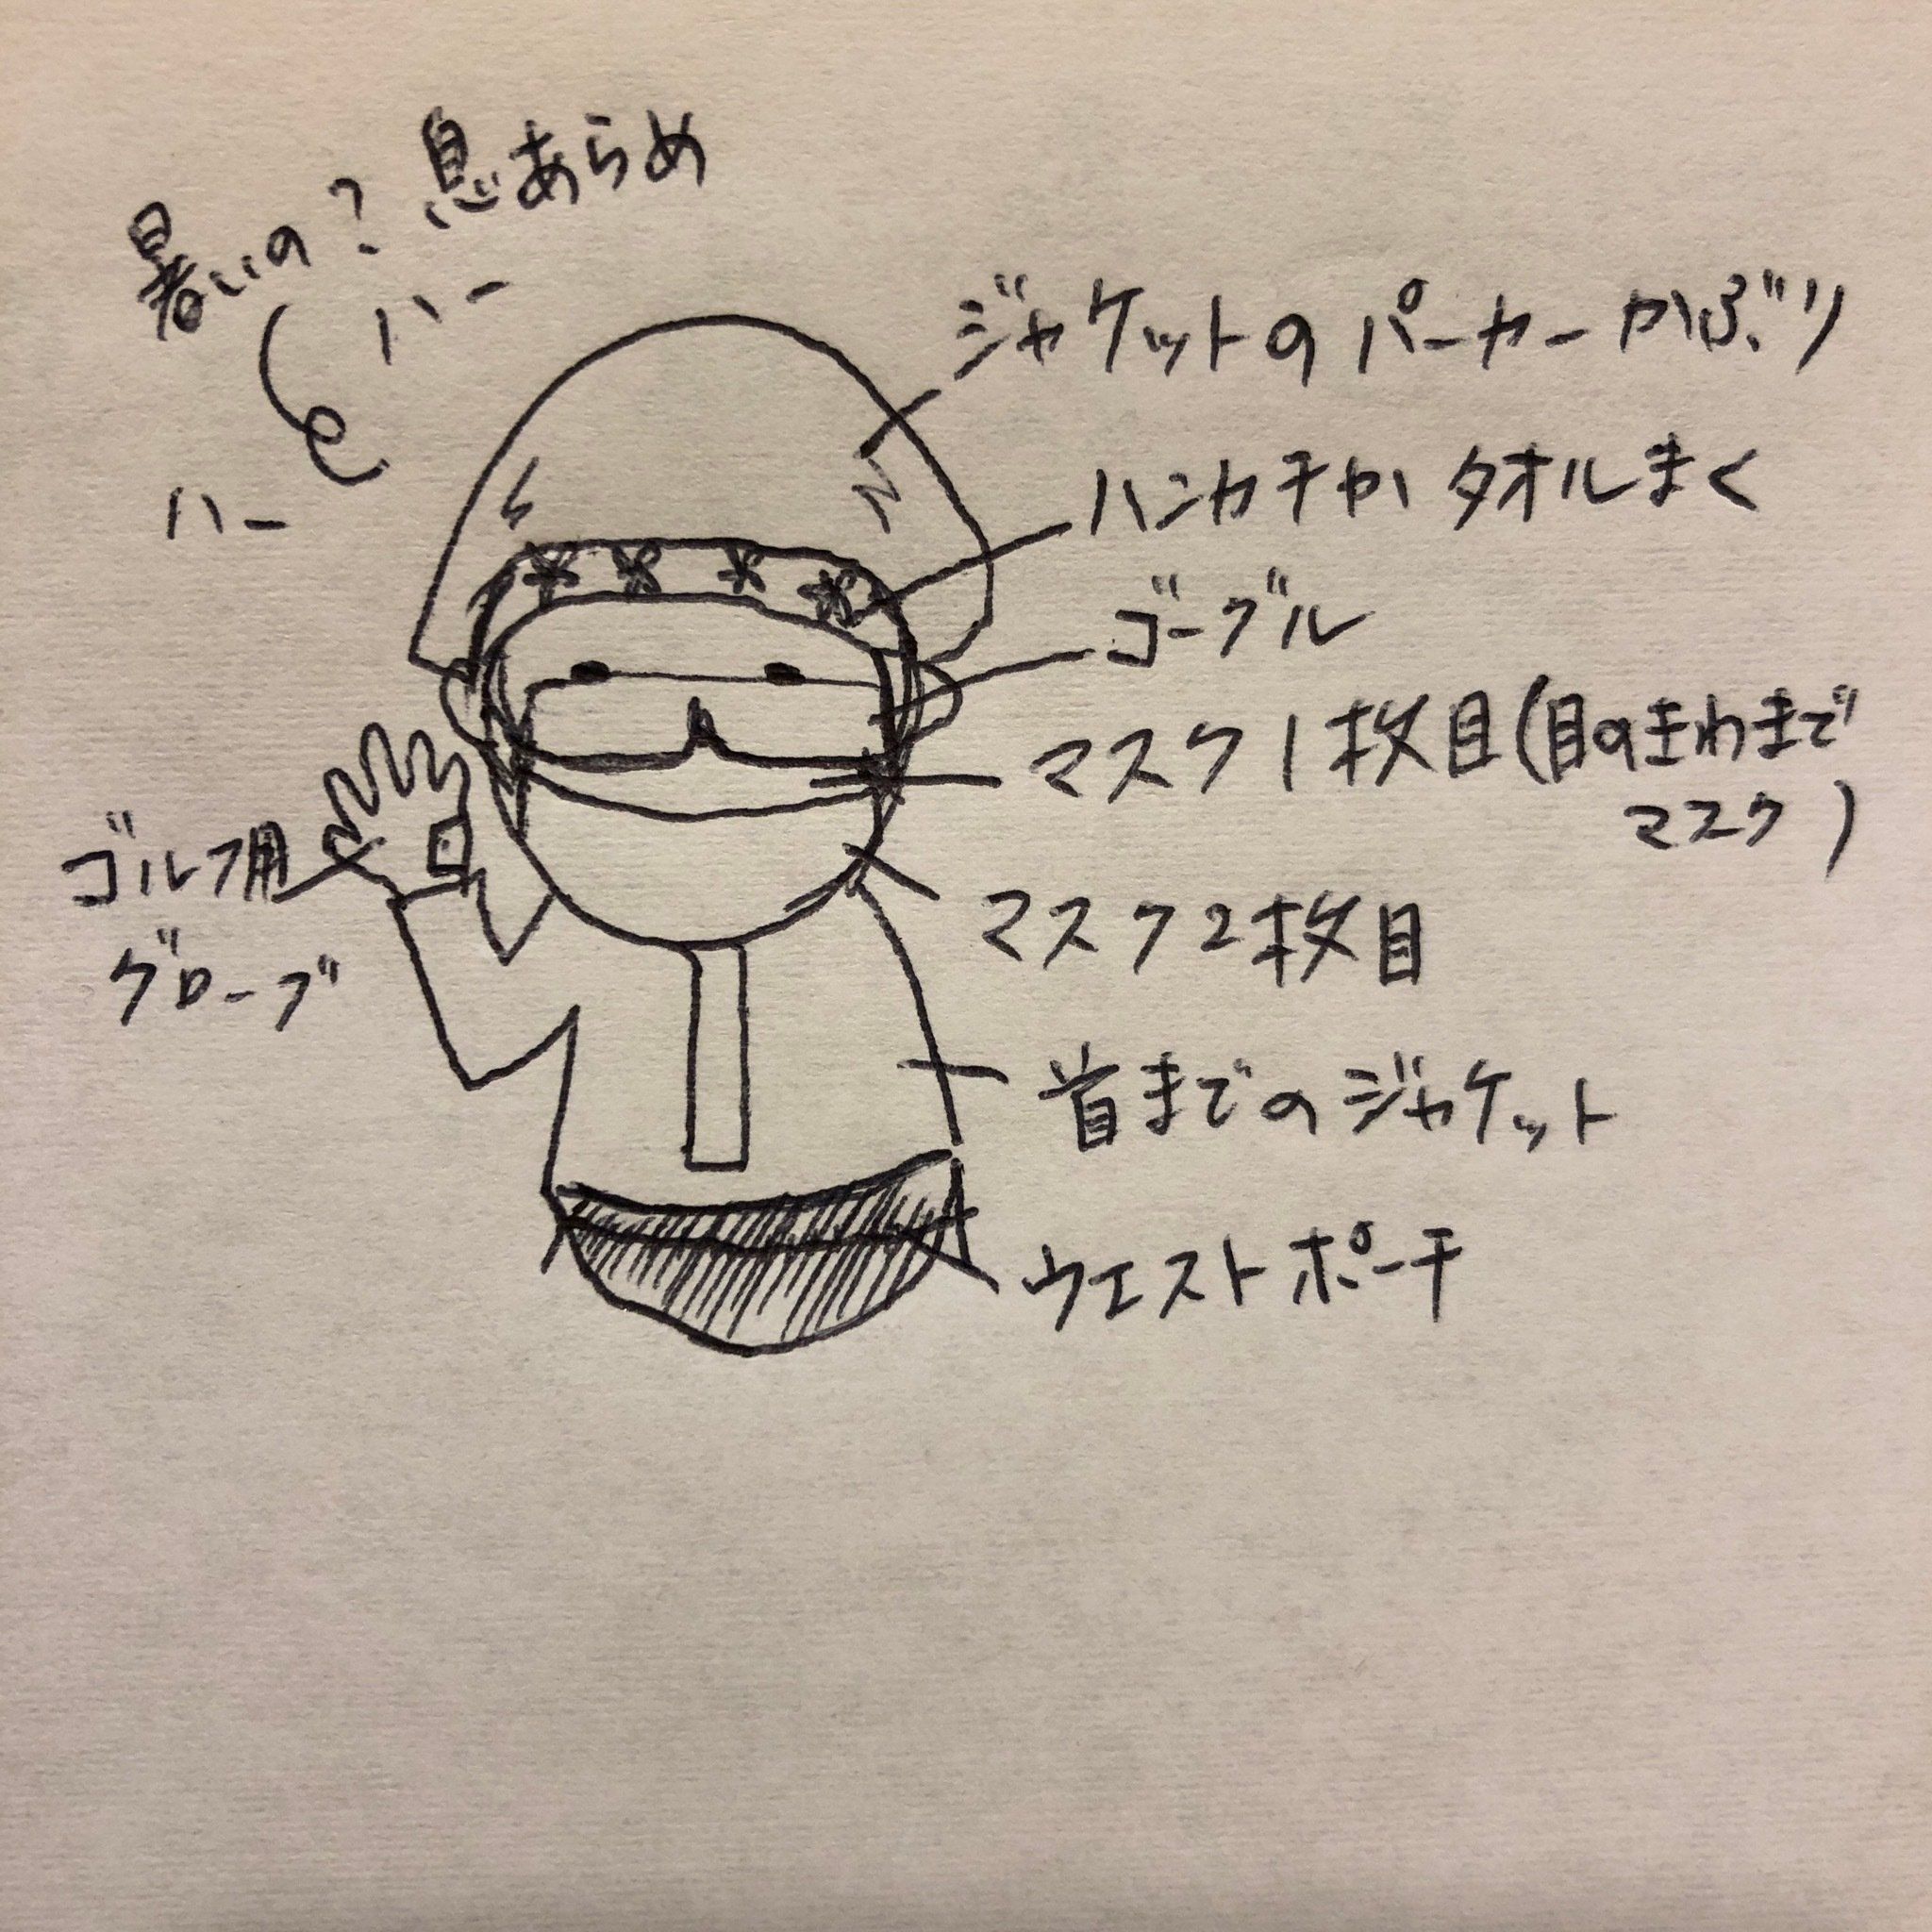 暑いの？息あらめ
ハー
ハー
ジャケットのパーカーかぶり
ハンカチか タオルまく
ゴーグル
マスク1枚目(目のきわまで
マスク)
マスク2枚目
ゴルフ用
グローブ
首までのジャケット
ウエストポーチ